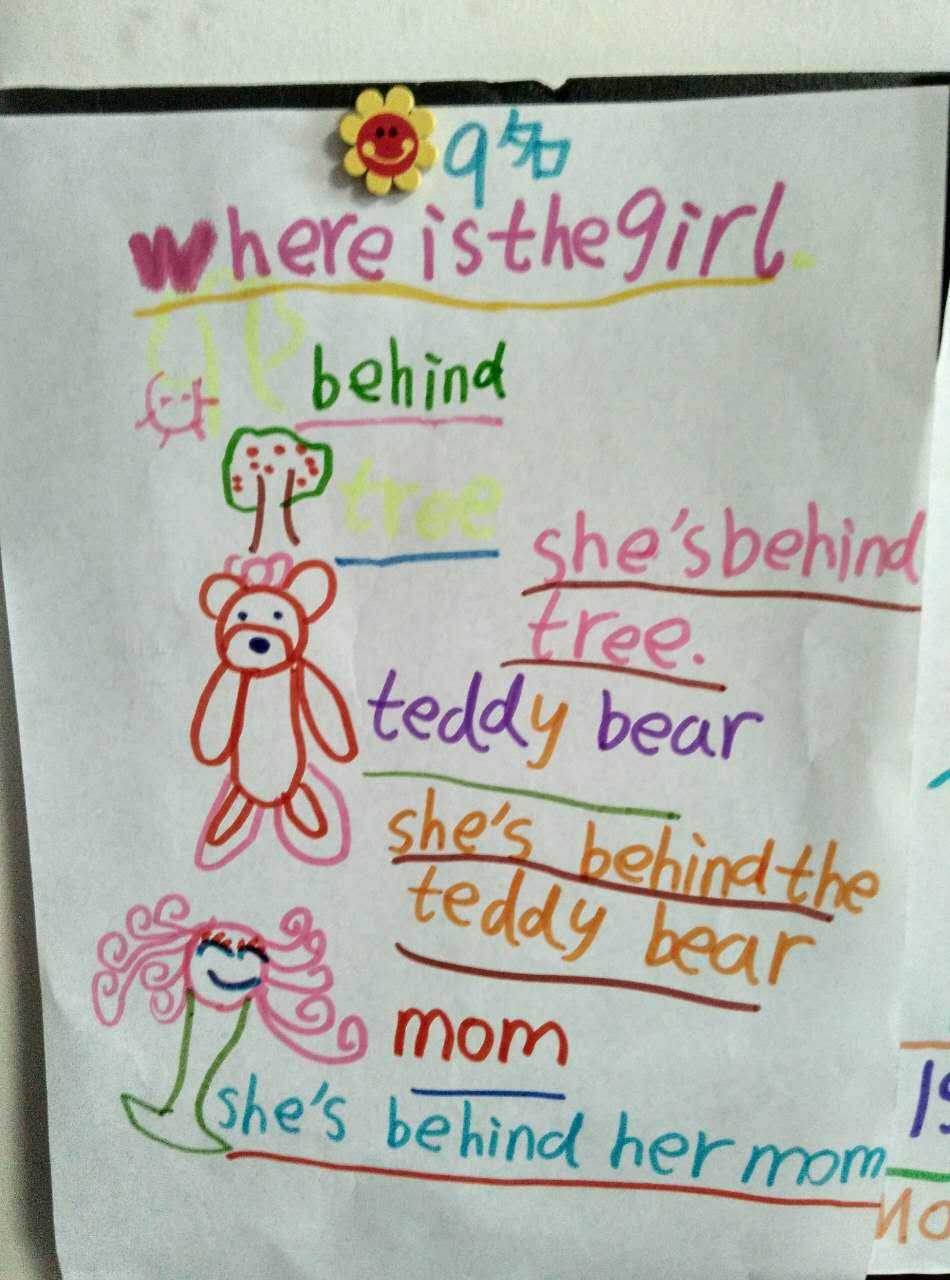 9
Where is the girl.
behind
tree
she's behind
tree.
teddy bear
she's behind the
teddy bear
mom
she's behind her mom